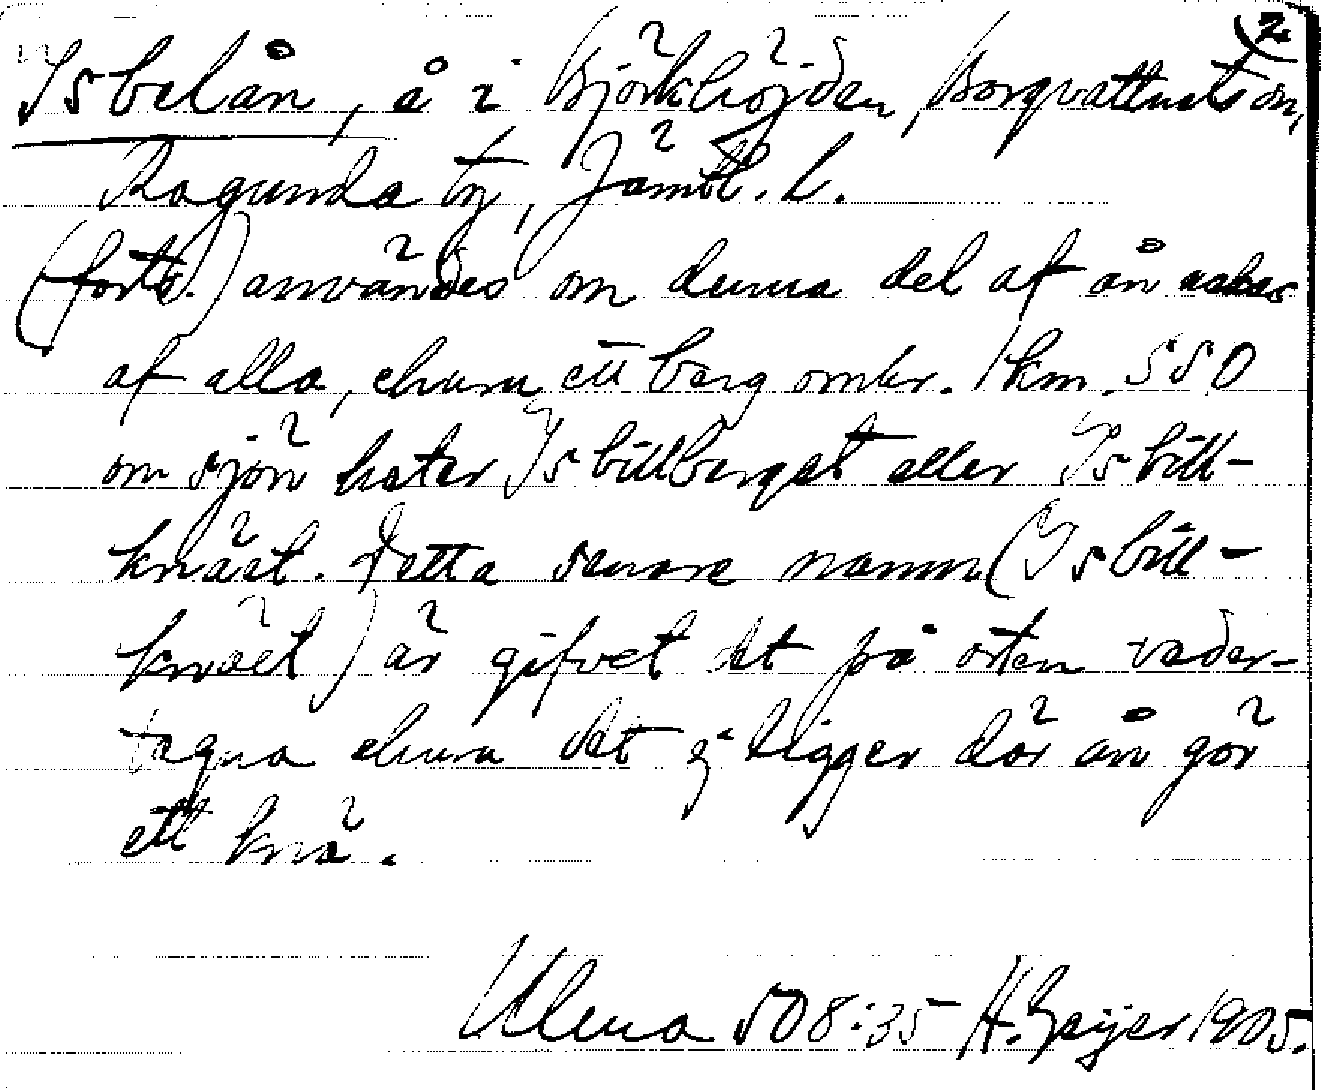 2
Isbelån, å i Björkhöjden, Borgvattnets sn,
Ragunda tg, Jämtl. L.
(forts.) användes om denna del af ån
af alla, ehuru ett berg omkr. 1 km. SSO
om sjön heter Isbillberget eller Isbill-
knäet. Detta senare namn (Isbill-
knäet) är gifvet det på orten veder-
tagna ehuru det ej ligger där ån gör
ett knä.
Ulma 508:35 H. Geijer 1905.